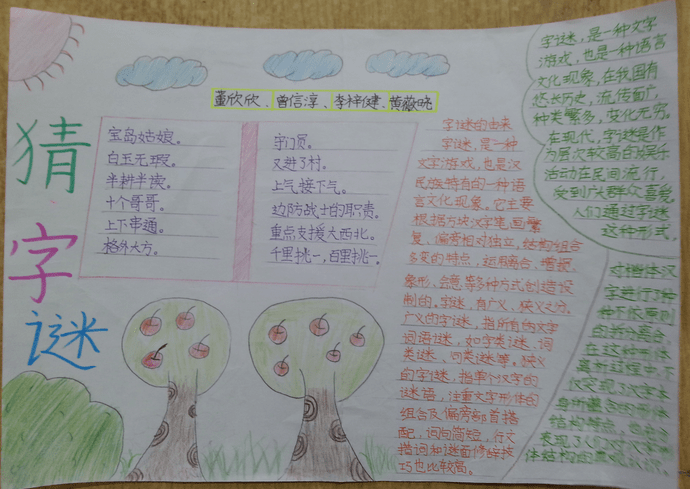 猜
字
谜
董欣欣、曾信淳、李梓健、黄薇晓
宝岛姑娘。
白玉无瑕。
半耕半读。
十个哥哥。
上下串通。
格外大方。
守门员。
又进了村。
上气接下气。
边防战士的职责。
重点支援大西北。
千里挑一,百里挑一。
字谜的由来
字谜,是一种
文字游戏,也是汉
民族特有的一种语
言文化现象。它主要
根据方块汉字笔画繁
复、偏旁相对独立,结构组合
多变的特点,运用离合、增损、
象形、会意等多种方式创造设
制的。字谜,有广义、狭义之分。
广义的字谜,指所有的文字
词语谜,如字类谜、词
类谜、句类谜等。狭义
的字谜,指单个汉字的
谜语,注重文字形体的
组合及偏旁部首搭
配,词句简短,行文
措词和谜面修辞技
巧也比较高。
字谜,是一种文字
游戏,也是一种语言
文化现象,在我国有
悠长历史,流传面广,
种类繁多,变化无穷。
在现代,字谜是作
为层次较高的娱乐
活动在民间流行,
受到广大群众喜爱。
人们通过字谜
这种形式,
对楷体汉
字进行了种
种不依原则
的拆拼离合,
在这种形体
离析过程中,不
仅走现了汉字本
身所蕴含的形体
结构特点,也
表现了人们对汉字形
体结构的